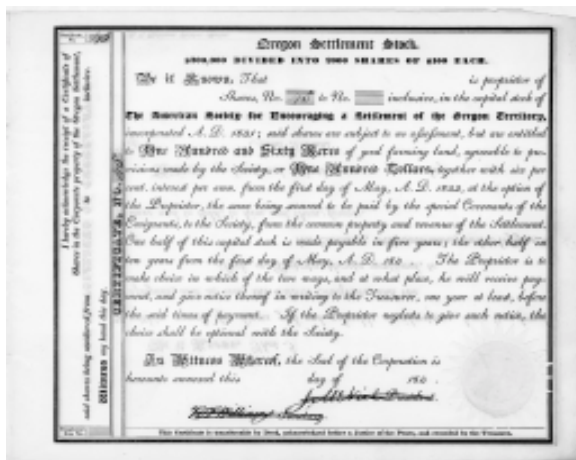 Oregon Settlement Stock.
$200,000 DIVIDED INTO 2000 SHARES OF $100 EACH.
Be it Known, That is proprietor of
Shares, No. to No. inclusive, in the capital stock of
The American Society for Encouraging a Settlement of the Oregon Territory,
incorporated A. D. 1831; said shares are subject to no assessment, but are entitled
to One Hundred and Sixty Acres of good farming land, agreeable to pro-
visions made by the Society, or One Hundred Dollars, together with six per
cent. interest per ann. from the first day of May, A. D. 1832, at the option of
the Proprietor, the same being secured to be paid by the special Covenants of the
Emigrants, to the Society, from the common property and revenue of the Settlement.
One half of this capital stock is made payable in five years; the other half in
ten years from the first day of May, A. D. 183 . The Proprietor is to
make choice in which of the two ways, and at what place, he will receive pay-
ment, and give notice thereof in writing to the Treasurer, one year at least, before
the said times of payment. If the Proprietor neglects to give such notice, the
choice shall be optional with the Society.
In Witness Whereof, the Seal of the Corporation is
hereunto annexed this day of 183 .
This Certificate is transferable by Deed, acknowledged before a Justice of the Peace, and recorded by the Treasurer.
CERTIFICATE, NO.
I hereby acknowledge the receipt of a Certificate of
Shares in the Corporate property of the Oregon Settlement,
said shares being numbered from to inclusive.
Witness my hand this day.